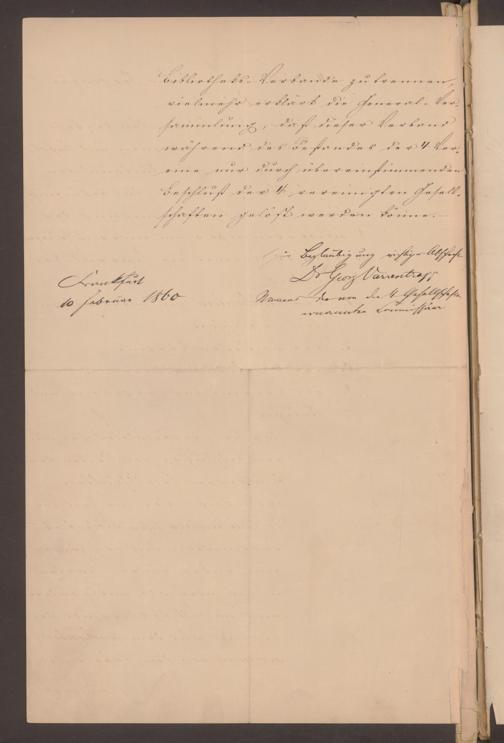 Bibliotheks-Verbande zu trennen,
vielmehr erklärt die General-Ver-
sammlung, daß dieser Verband
während des Bestandes der 4 Ver-
eine nur durch übereinstimmenden
Beschluß der 4 vereinigten Gesell-
schaften gelöst werden könne.
Beglaubigung richtiger Abschrift
Dr Georg Varrentrapp
Namens der von den 4 Gesellschaften
ernannten Commissäre
Frankfurt
10 Februar 1860